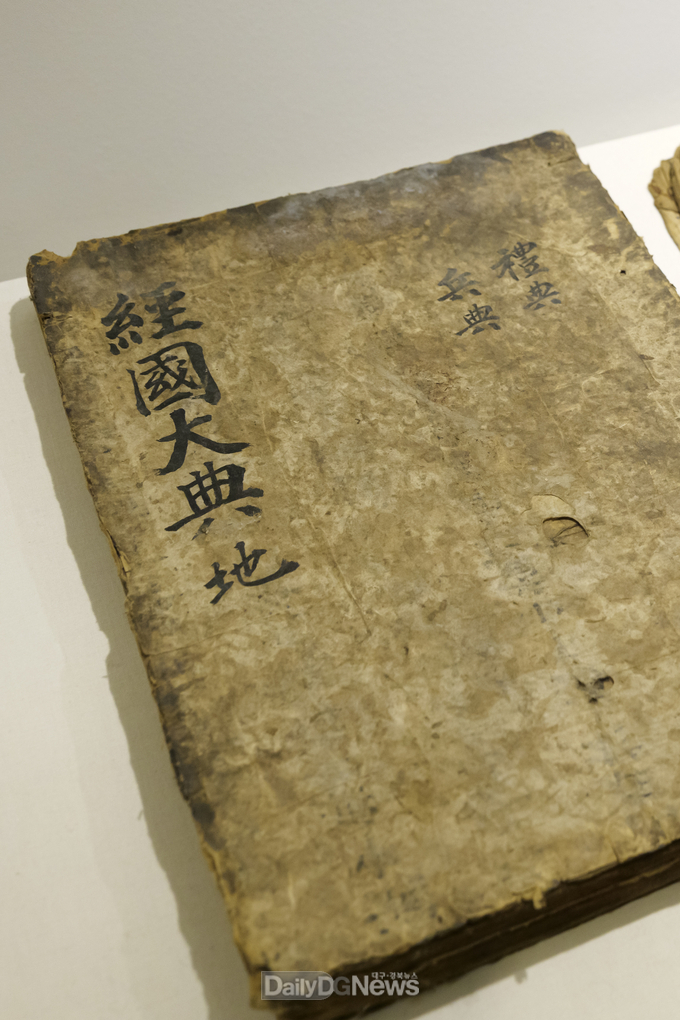 經國大典 地
禮典
兵典
대구·경북뉴스
DailyDGNews